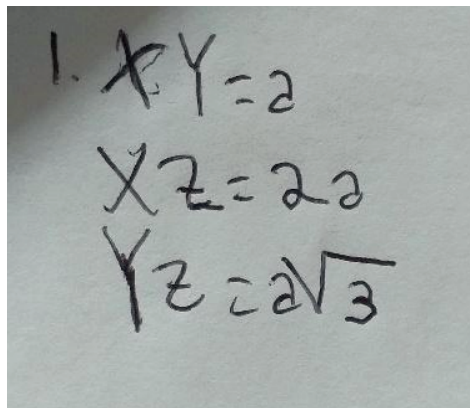 1. XY = a
XZ = 2a
YZ = a√3